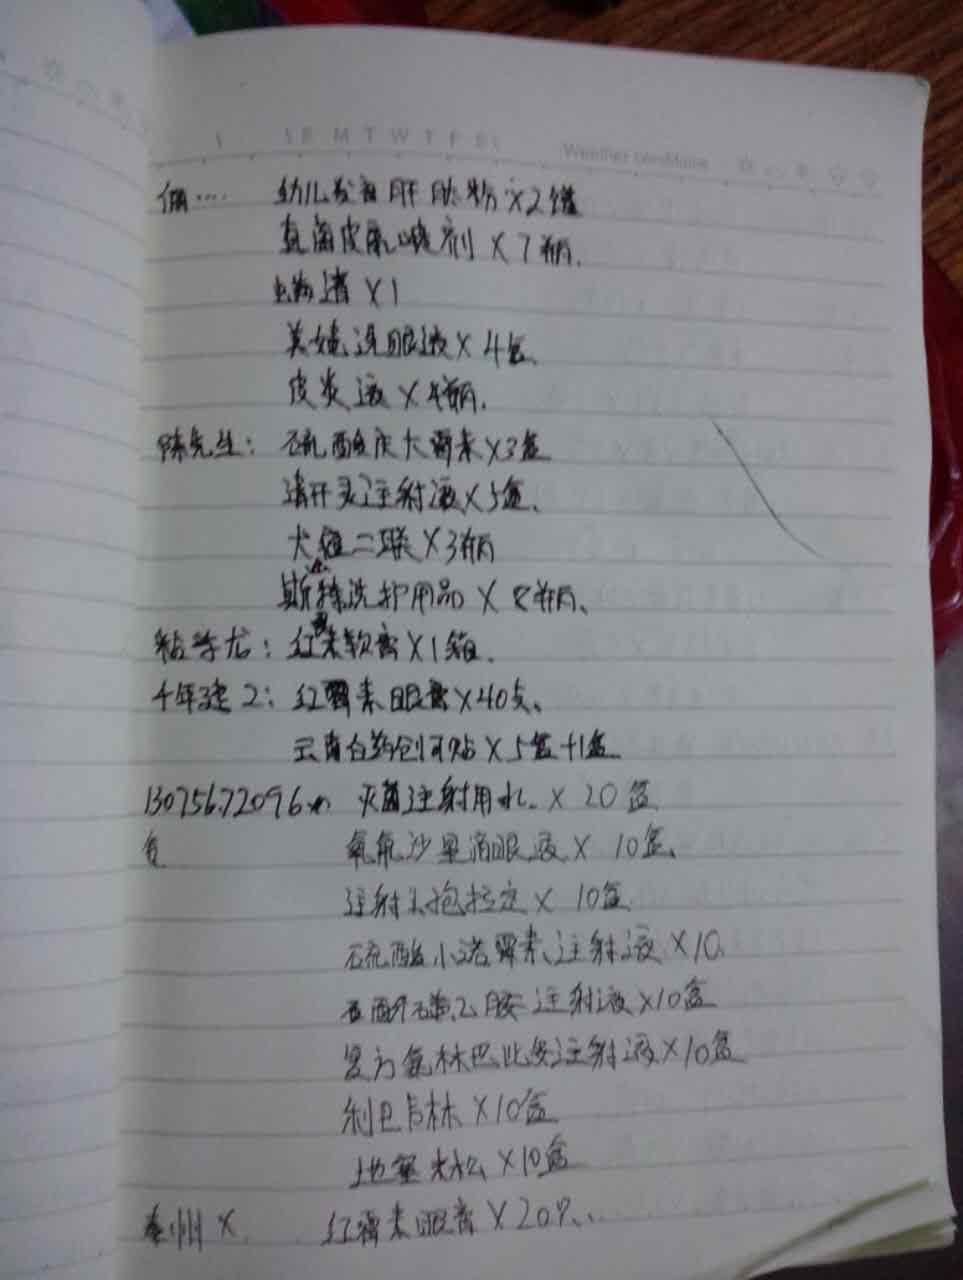 S M T W T F S
俩....  幼儿发育肝肽粉×2罐
真菌皮肤喷剂×7瓶.
×1
美婕洗眼液×4盒、
皮炎液×4瓶.
陈先生: 硫酸庆大霉素×3盒
清开灵注射液×5盒、
犬瘟二联×3瓶
斯特洗护用品×8瓶、
红霉素软膏×1箱.
千年建2: 红霉素眼膏×40支、
云南白药创可贴×5盒+1盒
13075672096 灭菌注射用水. ×20盒
氧氟沙星滴眼液×10盒、
注射头孢拉定×10盒
硫酸小诺霉素注射液×10
酚磺乙胺注射液×10盒
复方氨林巴比妥注射液×10盒
利巴韦林×10盒
地塞米松×10盒
泰州× 红霉素眼膏×20